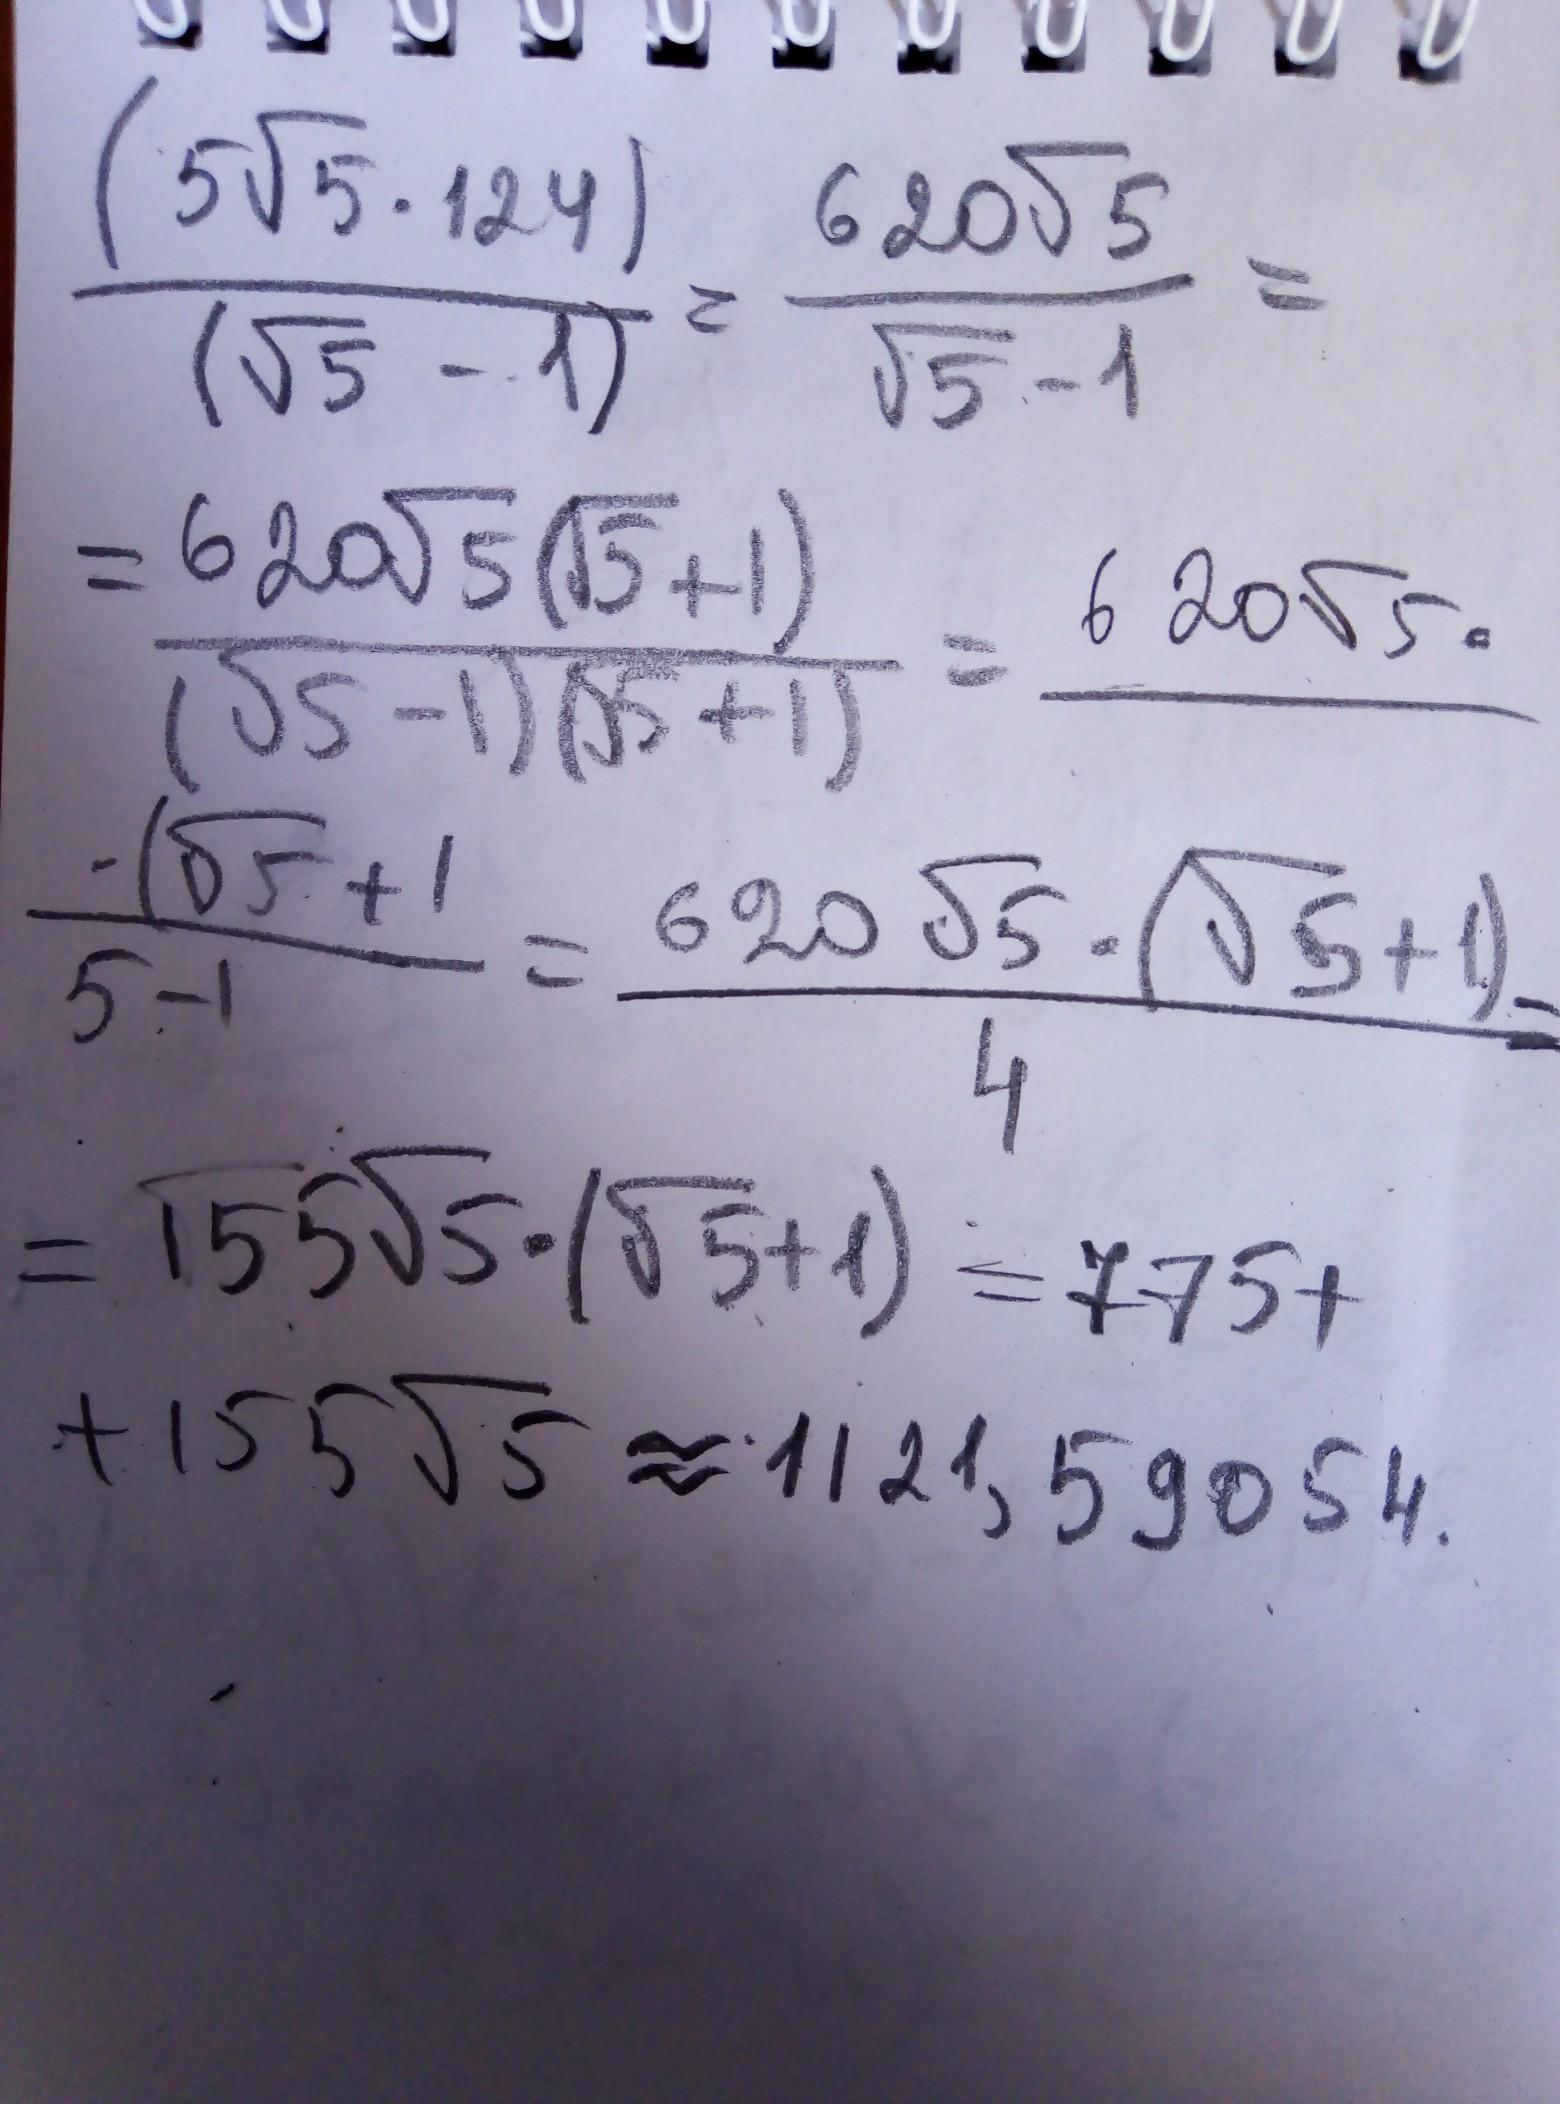 (5√5·124)/(√5-1) = 620√5/√5-1 =
= 620√5(√5+1)/(√5-1)(√5+1) = 620√5·
·(√5+1/5-1 = 620√5·(√5+1)/4 =
= 155√5·(√5+1) = 775+
+155√5 ≈ 1121,59054.